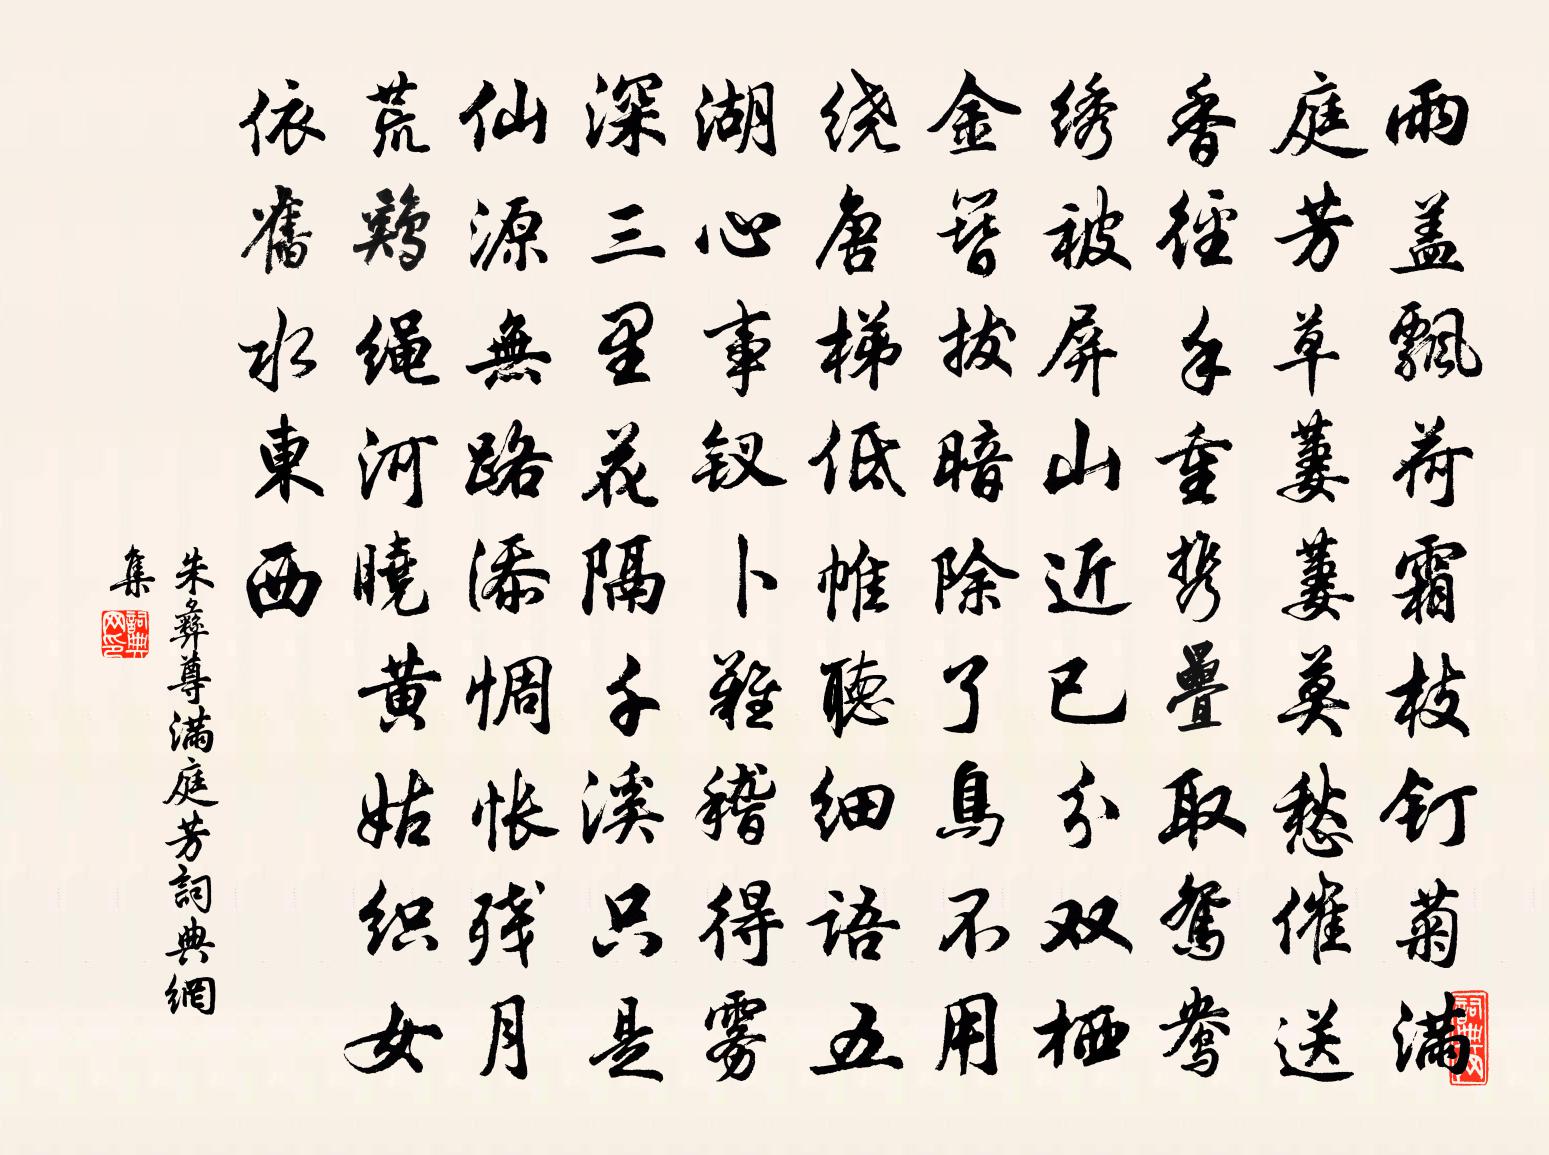 雨盖飄荷霜枝钉菊满
庭芳草萋萋莫愁催送
香徑手重携疊取鴛鴦
绣被屏山近已分双栖
金簪拔暗除了鳥不用
绕唐梯低帷聽细语五
湖心事钗卜難稽得雾
深三里花隔千溪只是
仙源無路添惆怅残月
荒鷄绳河曉黄姑织女
依舊水東西
朱彝尊满庭芳詞典網
集
詞典网印
詞典网